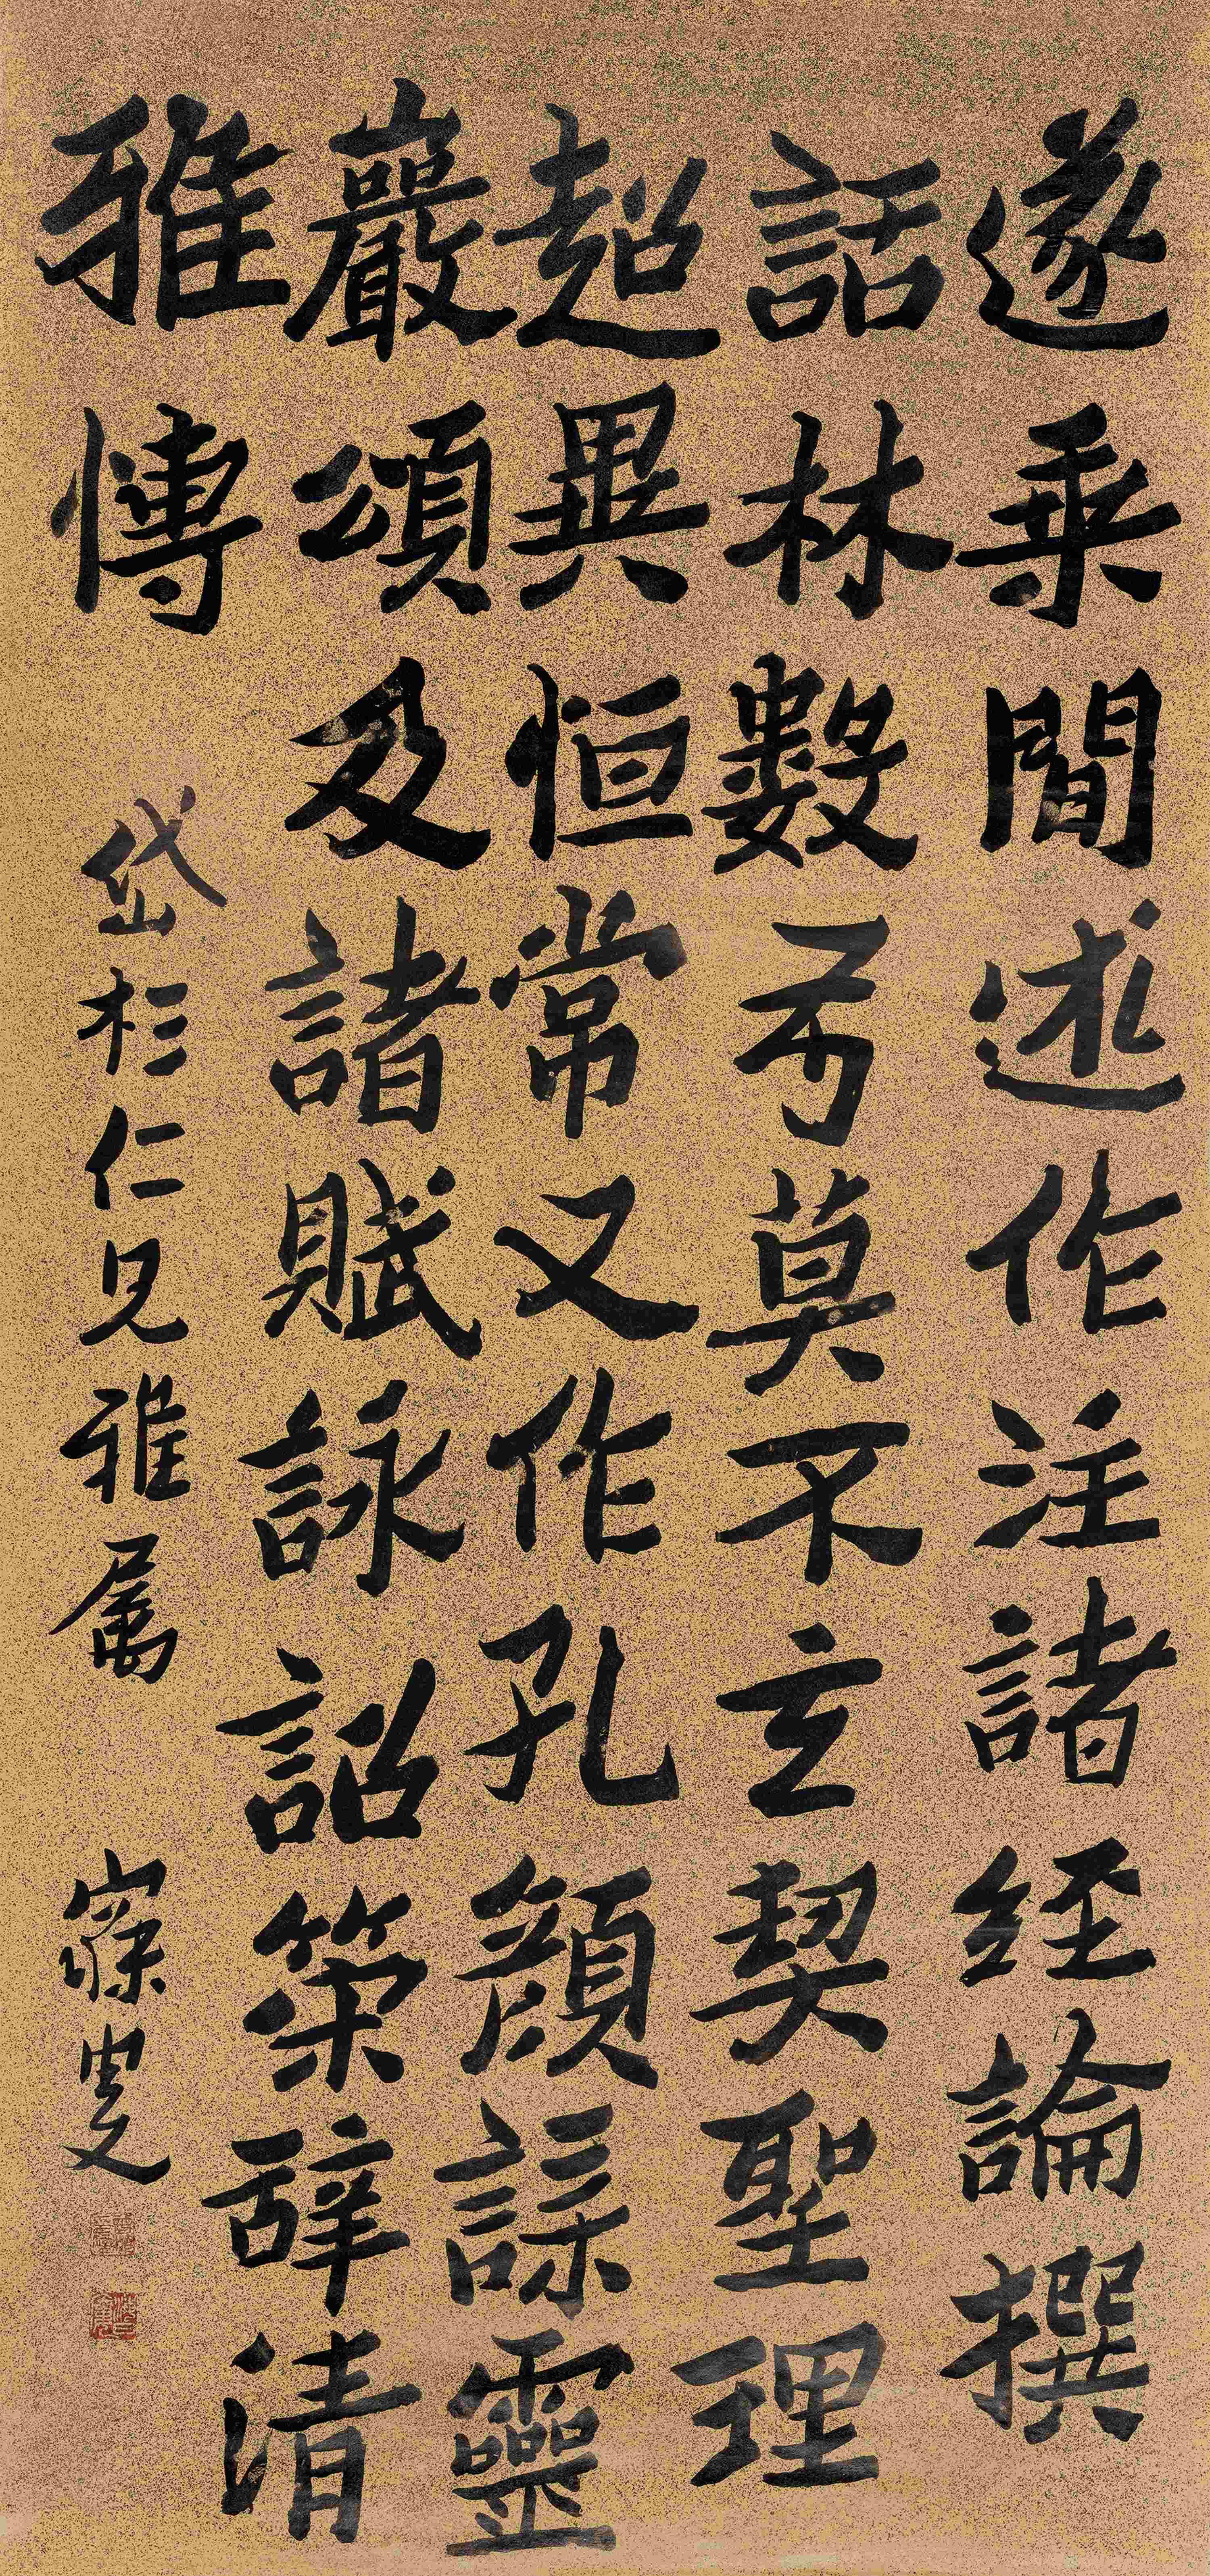 遂乘間述作注諸经論撰
話林數弓莫不玄契聖理
超異恒常又作孔顏誄靈
巖頌及諸賦詠詔策辭清
雅愽
岱杉仁兄雅属
寐叟